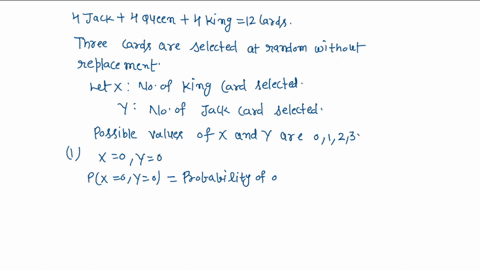 4 Jack + 4 Queen + 4 King = 12 Cards.
Three cards are selected at random without
replacement.
Let X : No. of King Card selected.
Y : No. of Jack Card selected.
Possible values of X and Y are 0, 1, 2, 3.
(1) X = 0, Y = 0
P(X = 0, Y = 0) = Probability of 0